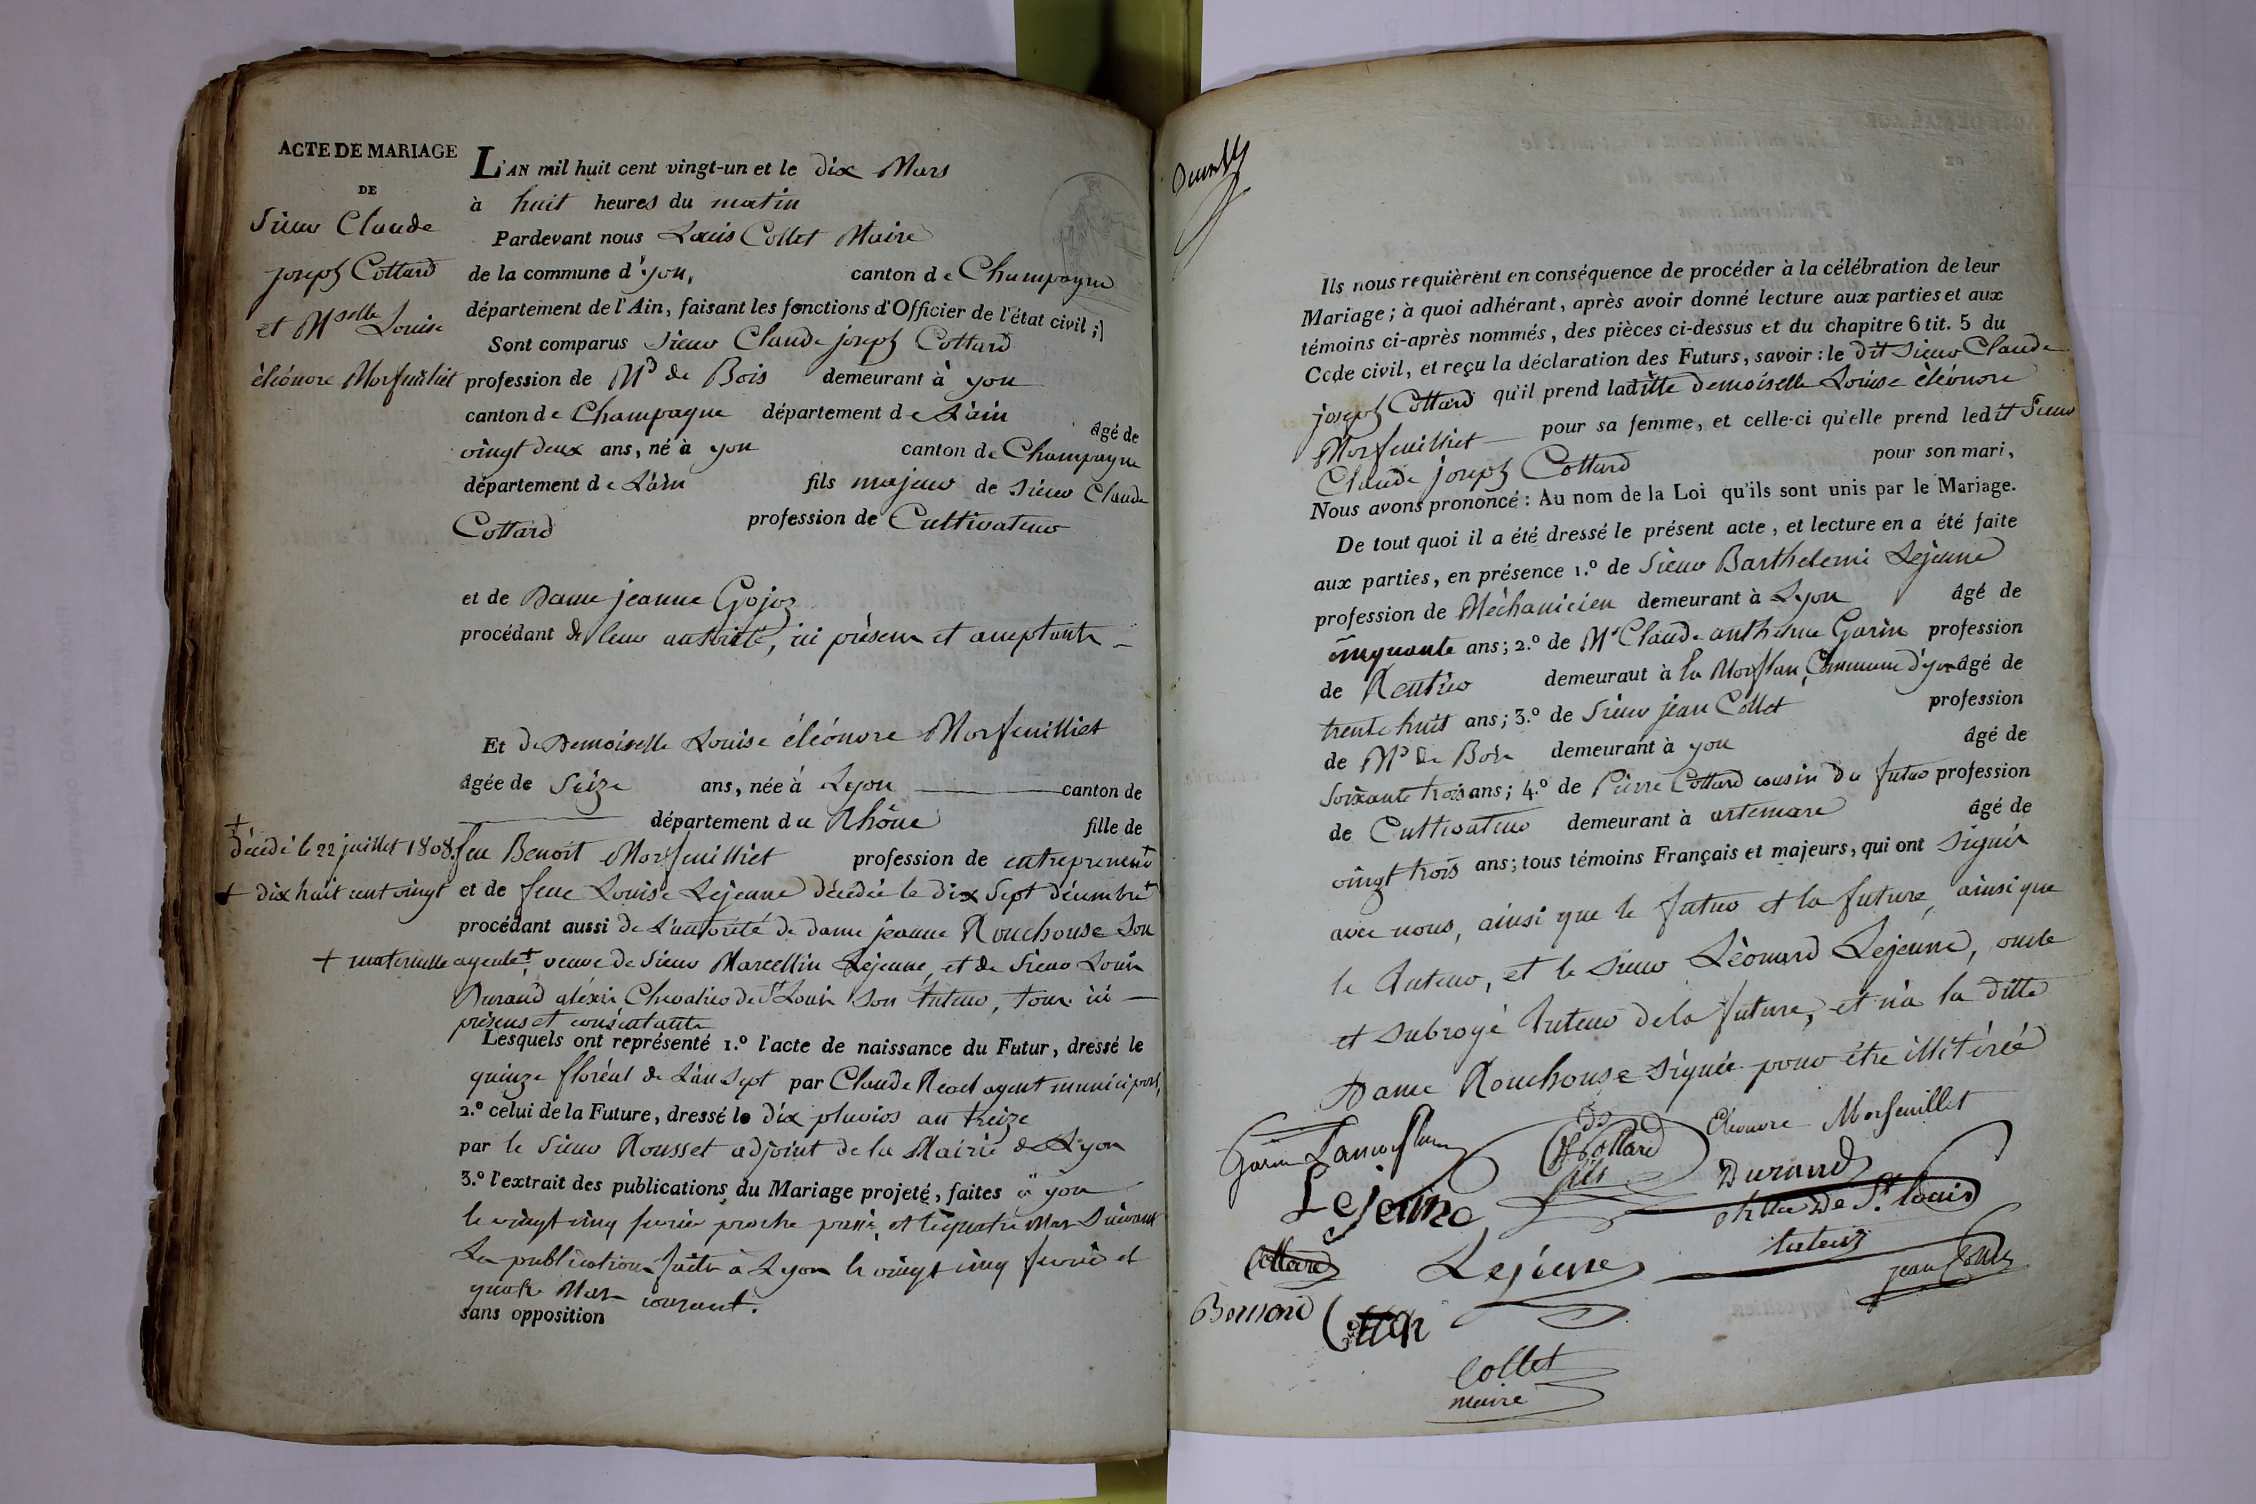 ACTE DE MARIAGE
DE
Sieur Claude
joseph Cottard
et Mselle Louise
èléonore Morfeuilliet
L'AN mil huit cent vingt-un et le dix Mars
à huit heures du matin
Pardevant nous Louis Collet Maire
de la commune d'yon, canton de Champagne
département de l'Ain, faisant les fonctions d'Officier de l'état civil ;
Sont comparus Sieur Claude joseph Cottard
profession de Md de Bois demeurant à yon
canton de Champagne département de L'ain âgé de
vingt deux ans, né à yon canton de Champagne
département de L'ain fils majeur de Sieur Claude
Cottard profession de Cultivateur
et de Dame jeanne Gojoz
procédant de leur autorité, ici présens et acceptants
Et de Demoiselle Louise éléonore Morfeuilliet
âgée de Seize ans, née à Lyon canton de
département du Rhône fille de
+ décédé le 22 juillet 1808. feu Benoit Morfeuilliet profession de entrepreneur +
+ dix huit cent vingt et de feue Louise Lejeune décédée le dix Sept décembre +
procédant aussi de L'autorité de dame jeanne Rouchouse Son
+ maternelle ayeule +, veuve de Sieur Marcellin Lejeune, et de Sieur Louis
Durand aléxis Chevalier de St Louis Son tuteur, tous ici
présens et consentants
Lesquels ont représenté 1.º l'acte de naissance du Futur, dressé le
quinze floréal de L'an Sept par Claude agent municipal,
2.º celui de la Future, dressé le dix pluvios an treize
par le Sieur Rousset adjoint de la Mairie de Lyon
3.º l'extrait des publications du Mariage projeté, faites à yon
le vingt cinq fevrier proche passé, et le quatre Mars Suivant
Les publications faites à Lyon le vingt cinq fevrier et
quatre Mars courant.
sans opposition
Ils nous requièrent en conséquence de procéder à la célébration de leur
Mariage ; à quoi adhérant, après avoir donné lecture aux parties et aux
témoins ci-après nommés, des pièces ci-dessus et du chapitre 6 tit. 5 du
Code civil, et reçu la déclaration des Futurs, savoir : le dit Sieur Claude
joseph Cottard qu'il prend laditte demoiselle Louise èléonore
Morfeuilliet pour sa femme, et celle-ci qu'elle prend ledit Sieur
Claude joseph Cottard pour son mari,
Nous avons prononcé : Au nom de la Loi qu'ils sont unis par le Mariage.
De tout quoi il a été dressé le présent acte, et lecture en a été faite
aux parties, en présence 1.º de Sieur Barthelemi Lejeune
profession de Méchanicien demeurant à Lyon âgé de
cinquante ans ; 2.º de Mr Claude anthelme Garin profession
de Rentier demeurant à la Morflan, Commune d'yon âgé de
trente huit ans ; 3.º de Sieur jean Collet profession
de Md de Bois demeurant à yon âgé de
Soixante trois ans ; 4.º de Pierre Cottard cousin du futur profession
de Cultivateur demeurant à artemare âgé de
vingt trois ans ; tous témoins Français et majeurs, qui ont Signés
avec nous, ainsi que le futur et la future, ainsi que
le Tuteur, et le Sieur Lèonard Lejeune, oncle
et subrogé Tuteur de la future, et n'a la ditte
Dame Rouchouse Signée pour être illitérée
Garin Lamorflan Cottard fils Eléonore Morfeuillet
Lejeune Durand
chller De St. louis
tuteur
Cottard Lejeune jean Collet
Bernard
Collet
maire